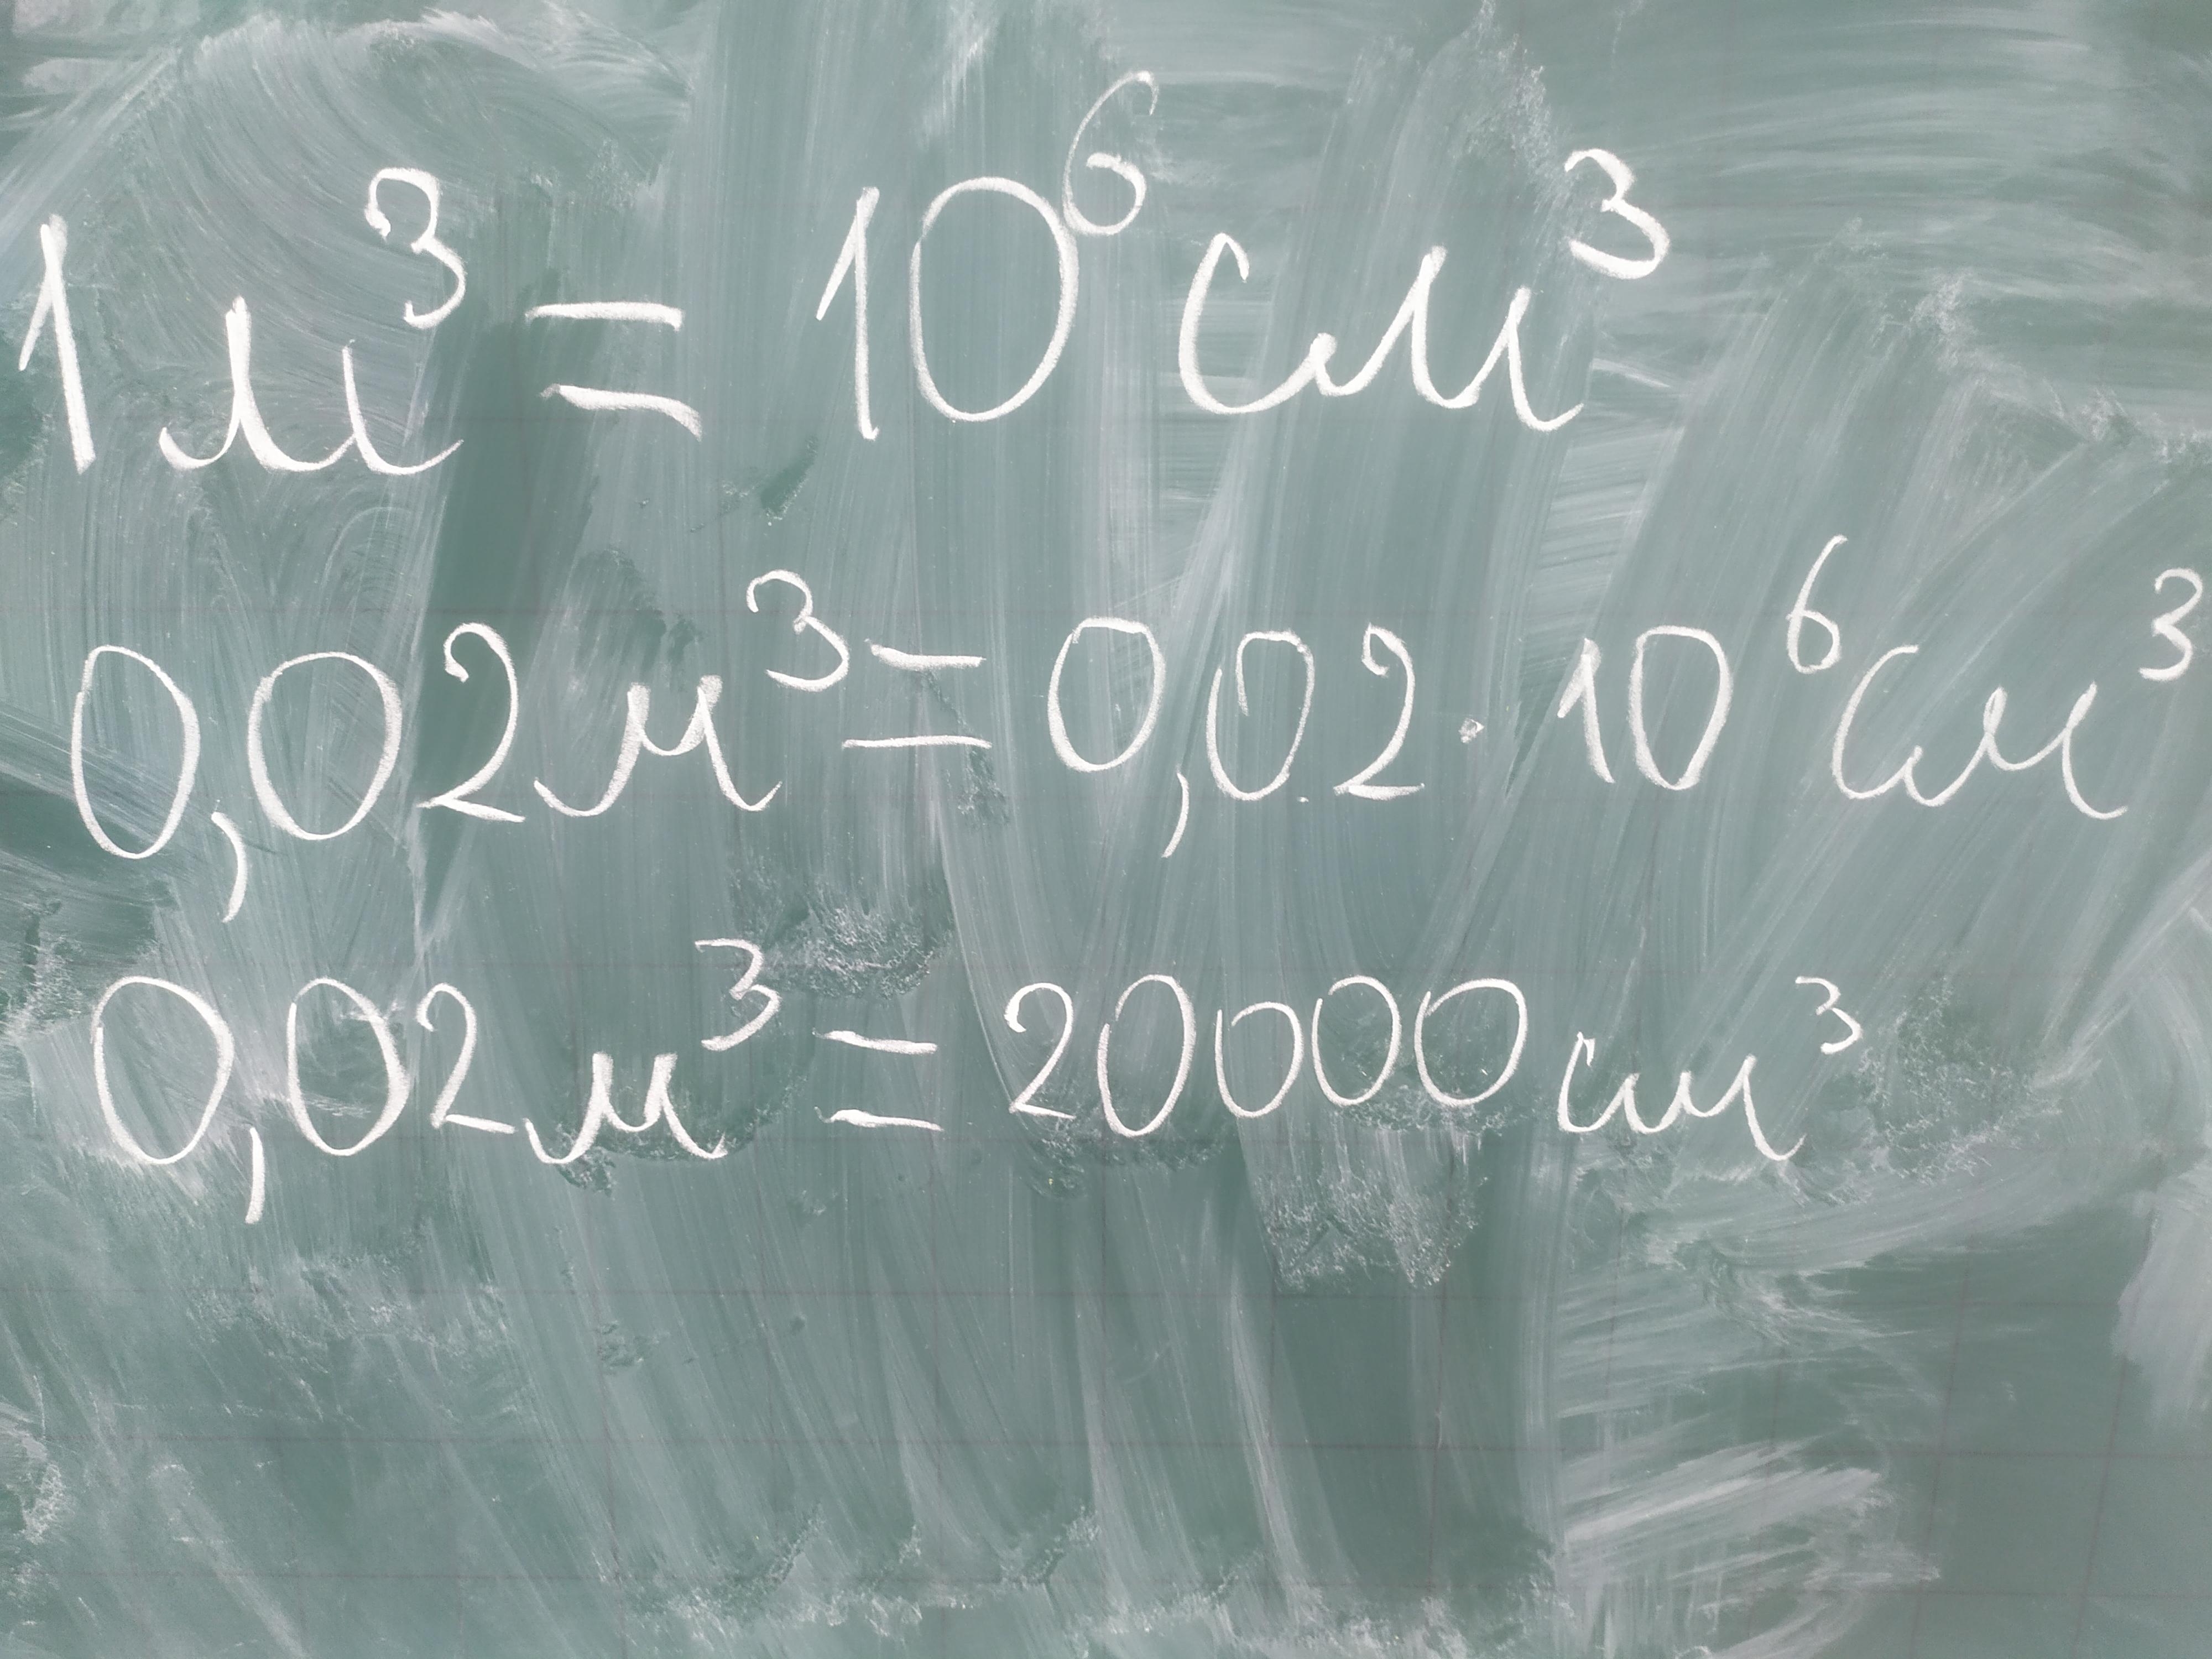 1 м³ = 10⁶ см³
0,02 м³ = 0,02 · 10⁶ см³
0,02 м³ = 20000 см³